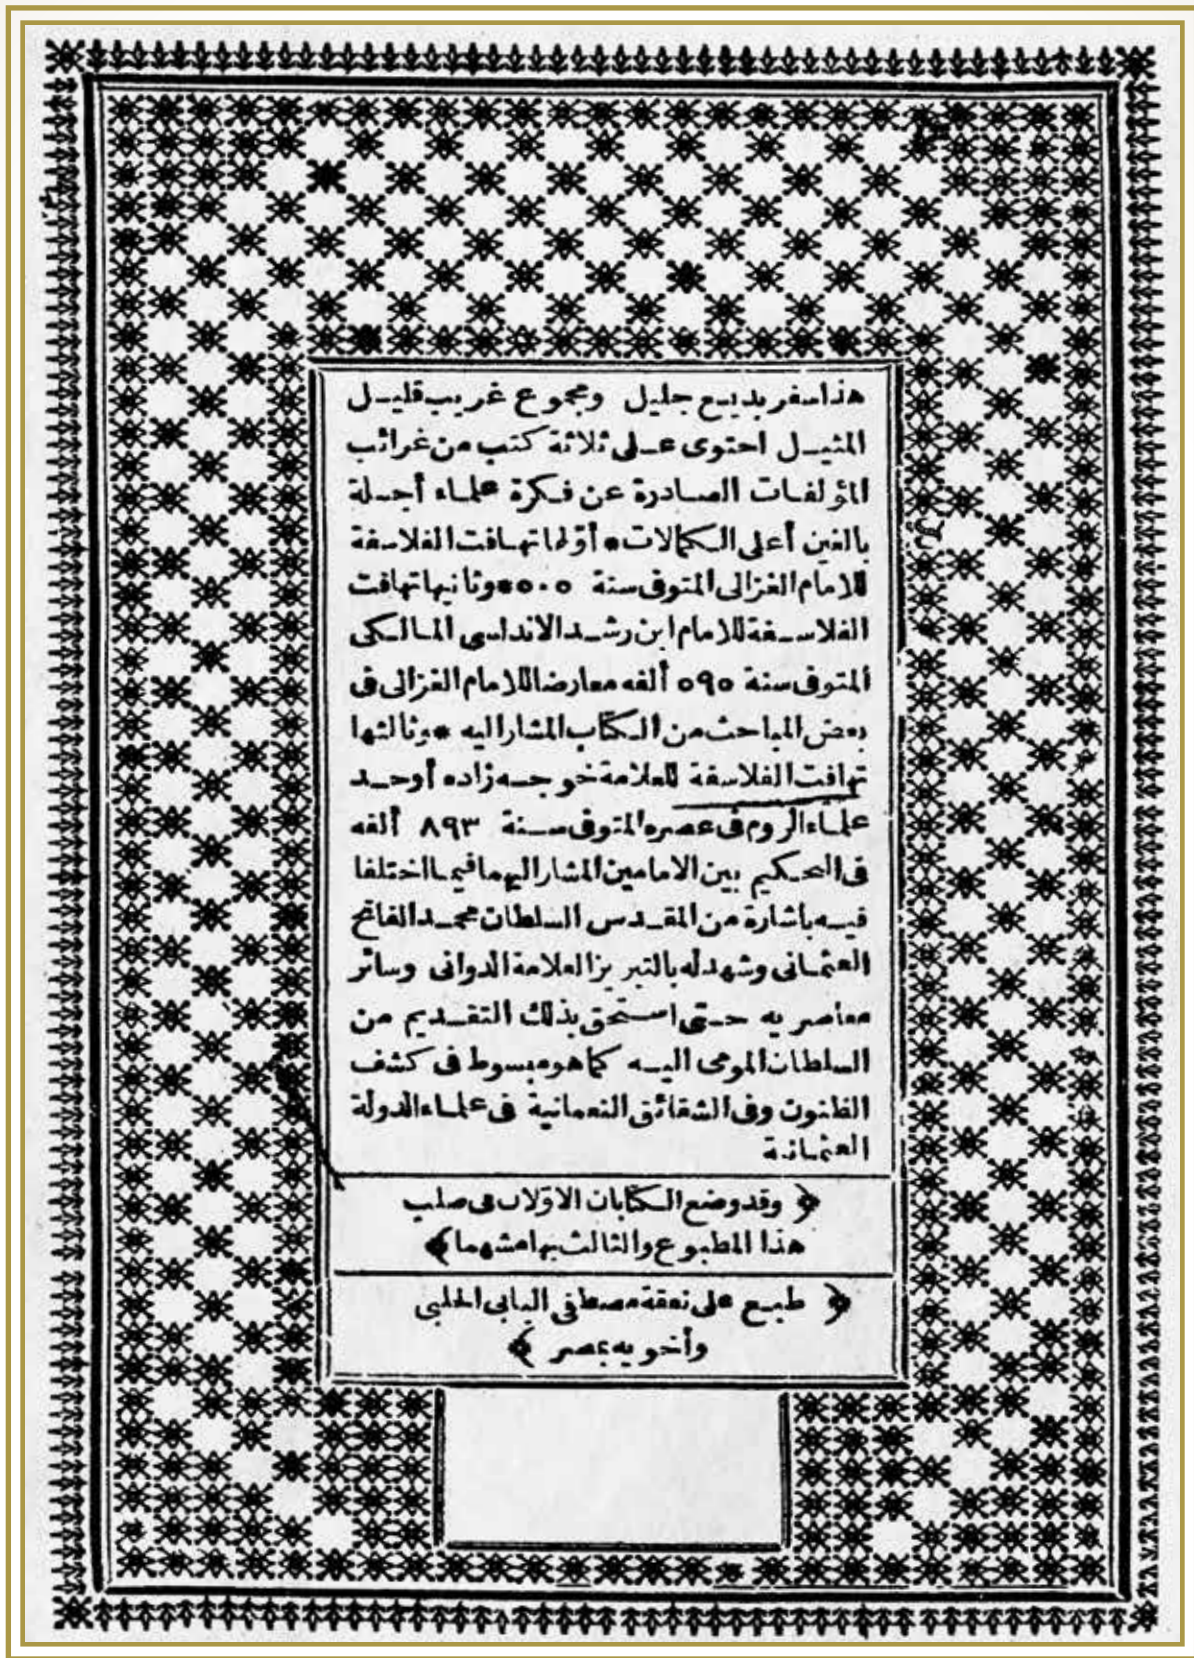 هذا سفر بديع جليل ومجموع غريب قليل
المثيل احتوى على ثلاثة كتب من غرائب
المؤلفات الصادرة عن فكرة علماء أجلة
بالغين أعلى الكمالات * أوّلها تهافت الفلاسفة
للامام الغزالى المتوفى سنة ٥٠٥ * وثانيها تهافت
الفلاسفة للامام ابن رشد الاندلسى المالكى
المتوفى سنة ٥٩٥ ألفه معارضا للامام الغزالى فى
بعض المباحث من الكتاب المشار اليه * وثالثها
تهافت الفلاسفة للعلامة خوجه زاده أوحد
علماء الروم فى عصره المتوفى سنة ٨٩٣ ألفه
فى التحكيم بين الامامين المشار اليهما فيما اختلفا
فيه باشارة من المقدس السلطان محمد الفاتح
العثمانى وشهد له بالتبريز العلامة الدوانى وسائر
معاصريه حتى استحق بذلك التقديم من
السلطان المومى اليه كما هو مبسوط فى كشف
الظنون وفى الشقائق النعمانية فى علماء الدولة
العثمانية
﴿ وقد وضع الكتابان الاوّلان فى صلب
هذا المطبوع والثالث بهامشهما ﴾
﴿ طبع على نفقة مصطفى البابى الحلبى
وأخويه بمصر ﴾